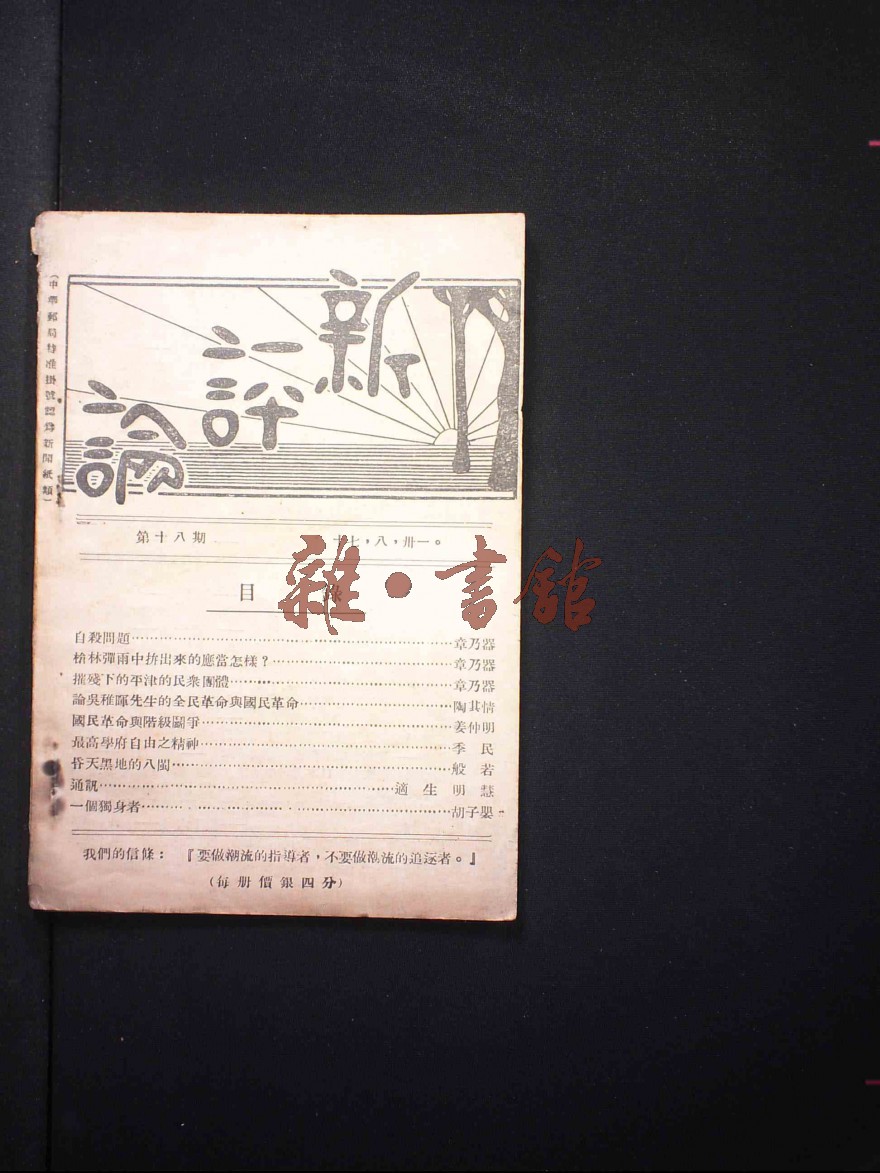 新評論
(中華郵局特准掛號認爲新聞紙類)
第十八期 十七,八,卅一。
目錄
自殺問題……章乃器
槍林彈雨中拚出來的應當怎樣?……章乃器
摧殘下的平津的民衆團體……章乃器
論吳稚暉先生的全民革命與國民革命……陶其情
國民革命與階級鬭爭……姜仲明
最高學府自由之精神……季民
昏天黑地的八閩……般若
通訊……適生 明慧
一個獨身者……胡子嬰
我們的信條:『要做潮流的指導者,不要做潮流的追逐者。』
(每册價銀四分)
雜·書館